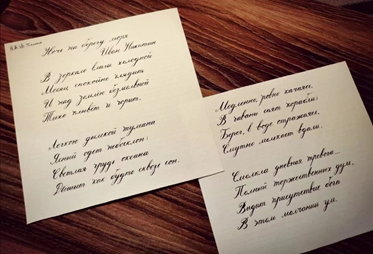 Ночь на берегу моря
Иван Никитин
В зеркало влаги холодной
Месяц спокойно глядит
И над землёю безмолвной
Тихо плывёт и горит.
Легкою дымкой тумана
Ясный одет небосклон;
Светлая грудь океана
Дышит как будто сквозь сон.
Медленно, ровно качаясь,
В гавани спят корабли;
Берег, в воде отражаясь,
Смутно мелькает вдали.
Смолкла дневная тревога...
Полный торжественных дум,
Видит присутствие бога
В этом молчании ум.